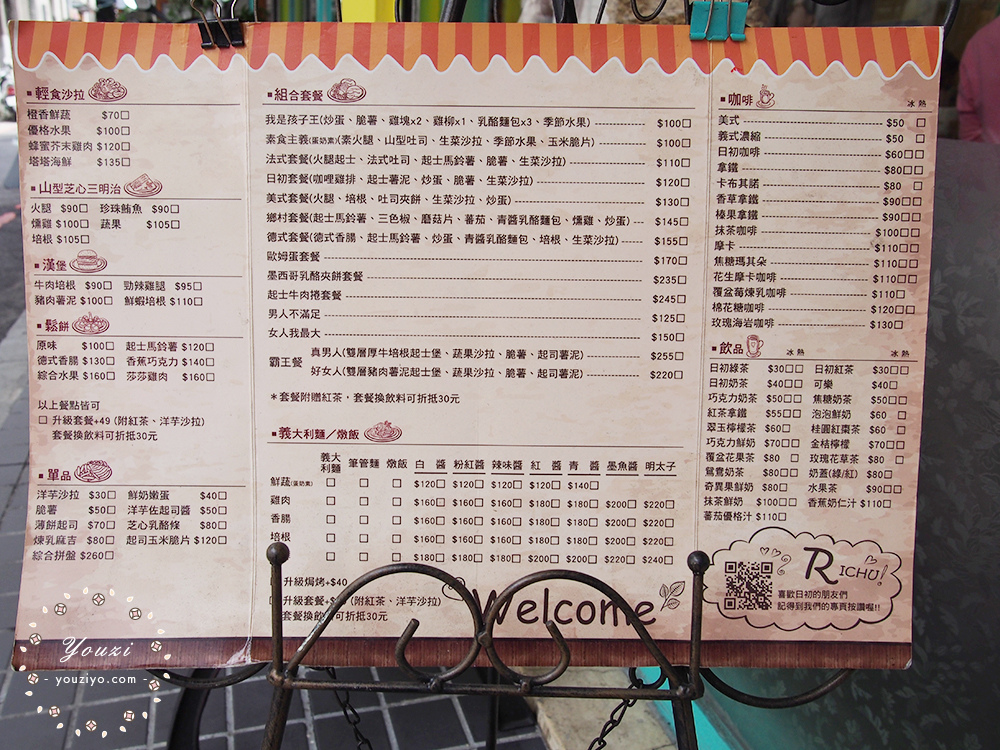 ■輕食沙拉
橙香鮮蔬 $70□
優格水果 $100□
蜂蜜芥末雞肉 $120□
塔塔海鮮 $135□
■山型芝心三明治
火腿 $90□ 珍珠鮪魚 $90□
燻雞 $100□ 蔬果 $105□
培根 $105□
■漢堡
牛肉培根 $90□ 勁辣雞腿 $95□
豬肉薯泥 $100□ 鮮蝦培根 $110□
■鬆餅
原味 $100□ 起士馬鈴薯 $120□
德式香腸 $130□ 香蕉巧克力 $140□
綜合水果 $160□ 莎莎雞肉 $160□
以上餐點皆可
□ 升級套餐+49 (附紅茶、洋芋沙拉)
套餐換飲料可折抵30元
■單品
洋芋沙拉 $30□ 鮮奶嫩蛋 $40□
脆薯 $50□ 洋芋佐起司醬 $50□
薄餅起司 $70□ 芝心乳酪條 $80□
煉乳麻吉 $80□ 起司玉米脆片 $120□
綜合拼盤 $260□
■組合套餐
我是孩子王(炒蛋、脆薯、雞塊x2、雞柳x1、乳酪麵包x3、季節水果) $100□
素食主義(蛋奶素)(素火腿、山型吐司、生菜沙拉、季節水果、玉米脆片) $100□
法式套餐(火腿起士、法式吐司、起士馬鈴薯、脆薯、生菜沙拉) $110□
日初套餐(咖哩雞排、起士薯泥、炒蛋、脆薯、生菜沙拉) $120□
美式套餐(火腿、培根、吐司夾餅、生菜沙拉、炒蛋) $130□
鄉村套餐(起士馬鈴薯、三色椒、磨菇片、蕃茄、青醬乳酪麵包、燻雞、炒蛋) $145□
德式套餐(德式香腸、起士馬鈴薯、炒蛋、青醬乳酪麵包、培根、生菜沙拉) $155□
歐姆蛋套餐 $170□
墨西哥乳酪夾餅套餐 $235□
起士牛肉捲套餐 $245□
男人不滿足 $125□
女人我最大 $150□
霸王餐 真男人(雙層厚牛培根起士堡、蔬果沙拉、脆薯、起司薯泥) $255□
好女人(雙層豬肉薯泥起士堡、蔬果沙拉、脆薯、起司薯泥) $220□
＊套餐附贈紅茶，套餐換飲料可折抵30元
■義大利麵／燉飯
義大利麵 筆管麵 燉飯 白醬 粉紅醬 辣味醬 紅醬 青醬 墨魚醬 明太子
鮮蔬(蛋奶素) □ □ □ $120□ $120□ $120□ $120□ $140□
雞肉 □ □ □ $160□ $160□ $160□ $180□ $180□ $200□ $220□
香腸 □ □ □ $160□ $160□ $160□ $180□ $180□ $200□ $220□
培根 □ □ □ $160□ $160□ $160□ $180□ $180□ $200□ $220□
□ □ □ $180□ $180□ $180□ $200□ $200□ $220□ $240□
升級焗烤+$40
升級套餐+$ (附紅茶、洋芋沙拉)
套餐換飲 可折抵30元
Welcome
■咖啡
冰 熱
美式 $50 □
義式濃縮 $50 □
日初咖啡 $60□□
拿鐵 $80□□
卡布其諾 $80 □
香草拿鐵 $90□□
榛果拿鐵 $90□□
抹茶咖啡 $100□□
摩卡 $110□□
焦糖瑪其朵 $110□□
花生摩卡咖啡 $110□□
覆盆莓煉乳咖啡 $110□
棉花糖咖啡 $120□□
玫瑰海岩咖啡 $130□
■飲品
冰 熱 冰 熱
日初綠茶 $30□□ 日初紅茶 $30□□
日初奶茶 $40□□ 可樂 $40□
巧克力奶茶 $50□□ 焦糖奶茶 $50□□
紅茶拿鐵 $55□□ 泡泡鮮奶 $60 □
翠玉檸檬茶 $60□ 桂圓紅棗茶 $60 □
巧克力鮮奶 $70□□ 金桔檸檬 $70□□
覆盆花果茶 $80 □ 玫瑰花草茶 $80 □
鴛鴦奶茶 $80□□ 奶蓋(綠/紅) $80□
奇異果鮮奶 $80□ 水果茶 $90□□
抹茶鮮奶 $100□□ 香蕉奶仁汁 $110□
蕃茄優格汁 $110□
RICHU!
喜歡日初的朋友們
記得到我們的專頁按讚喔!!
Youzi
- youziyo.com -